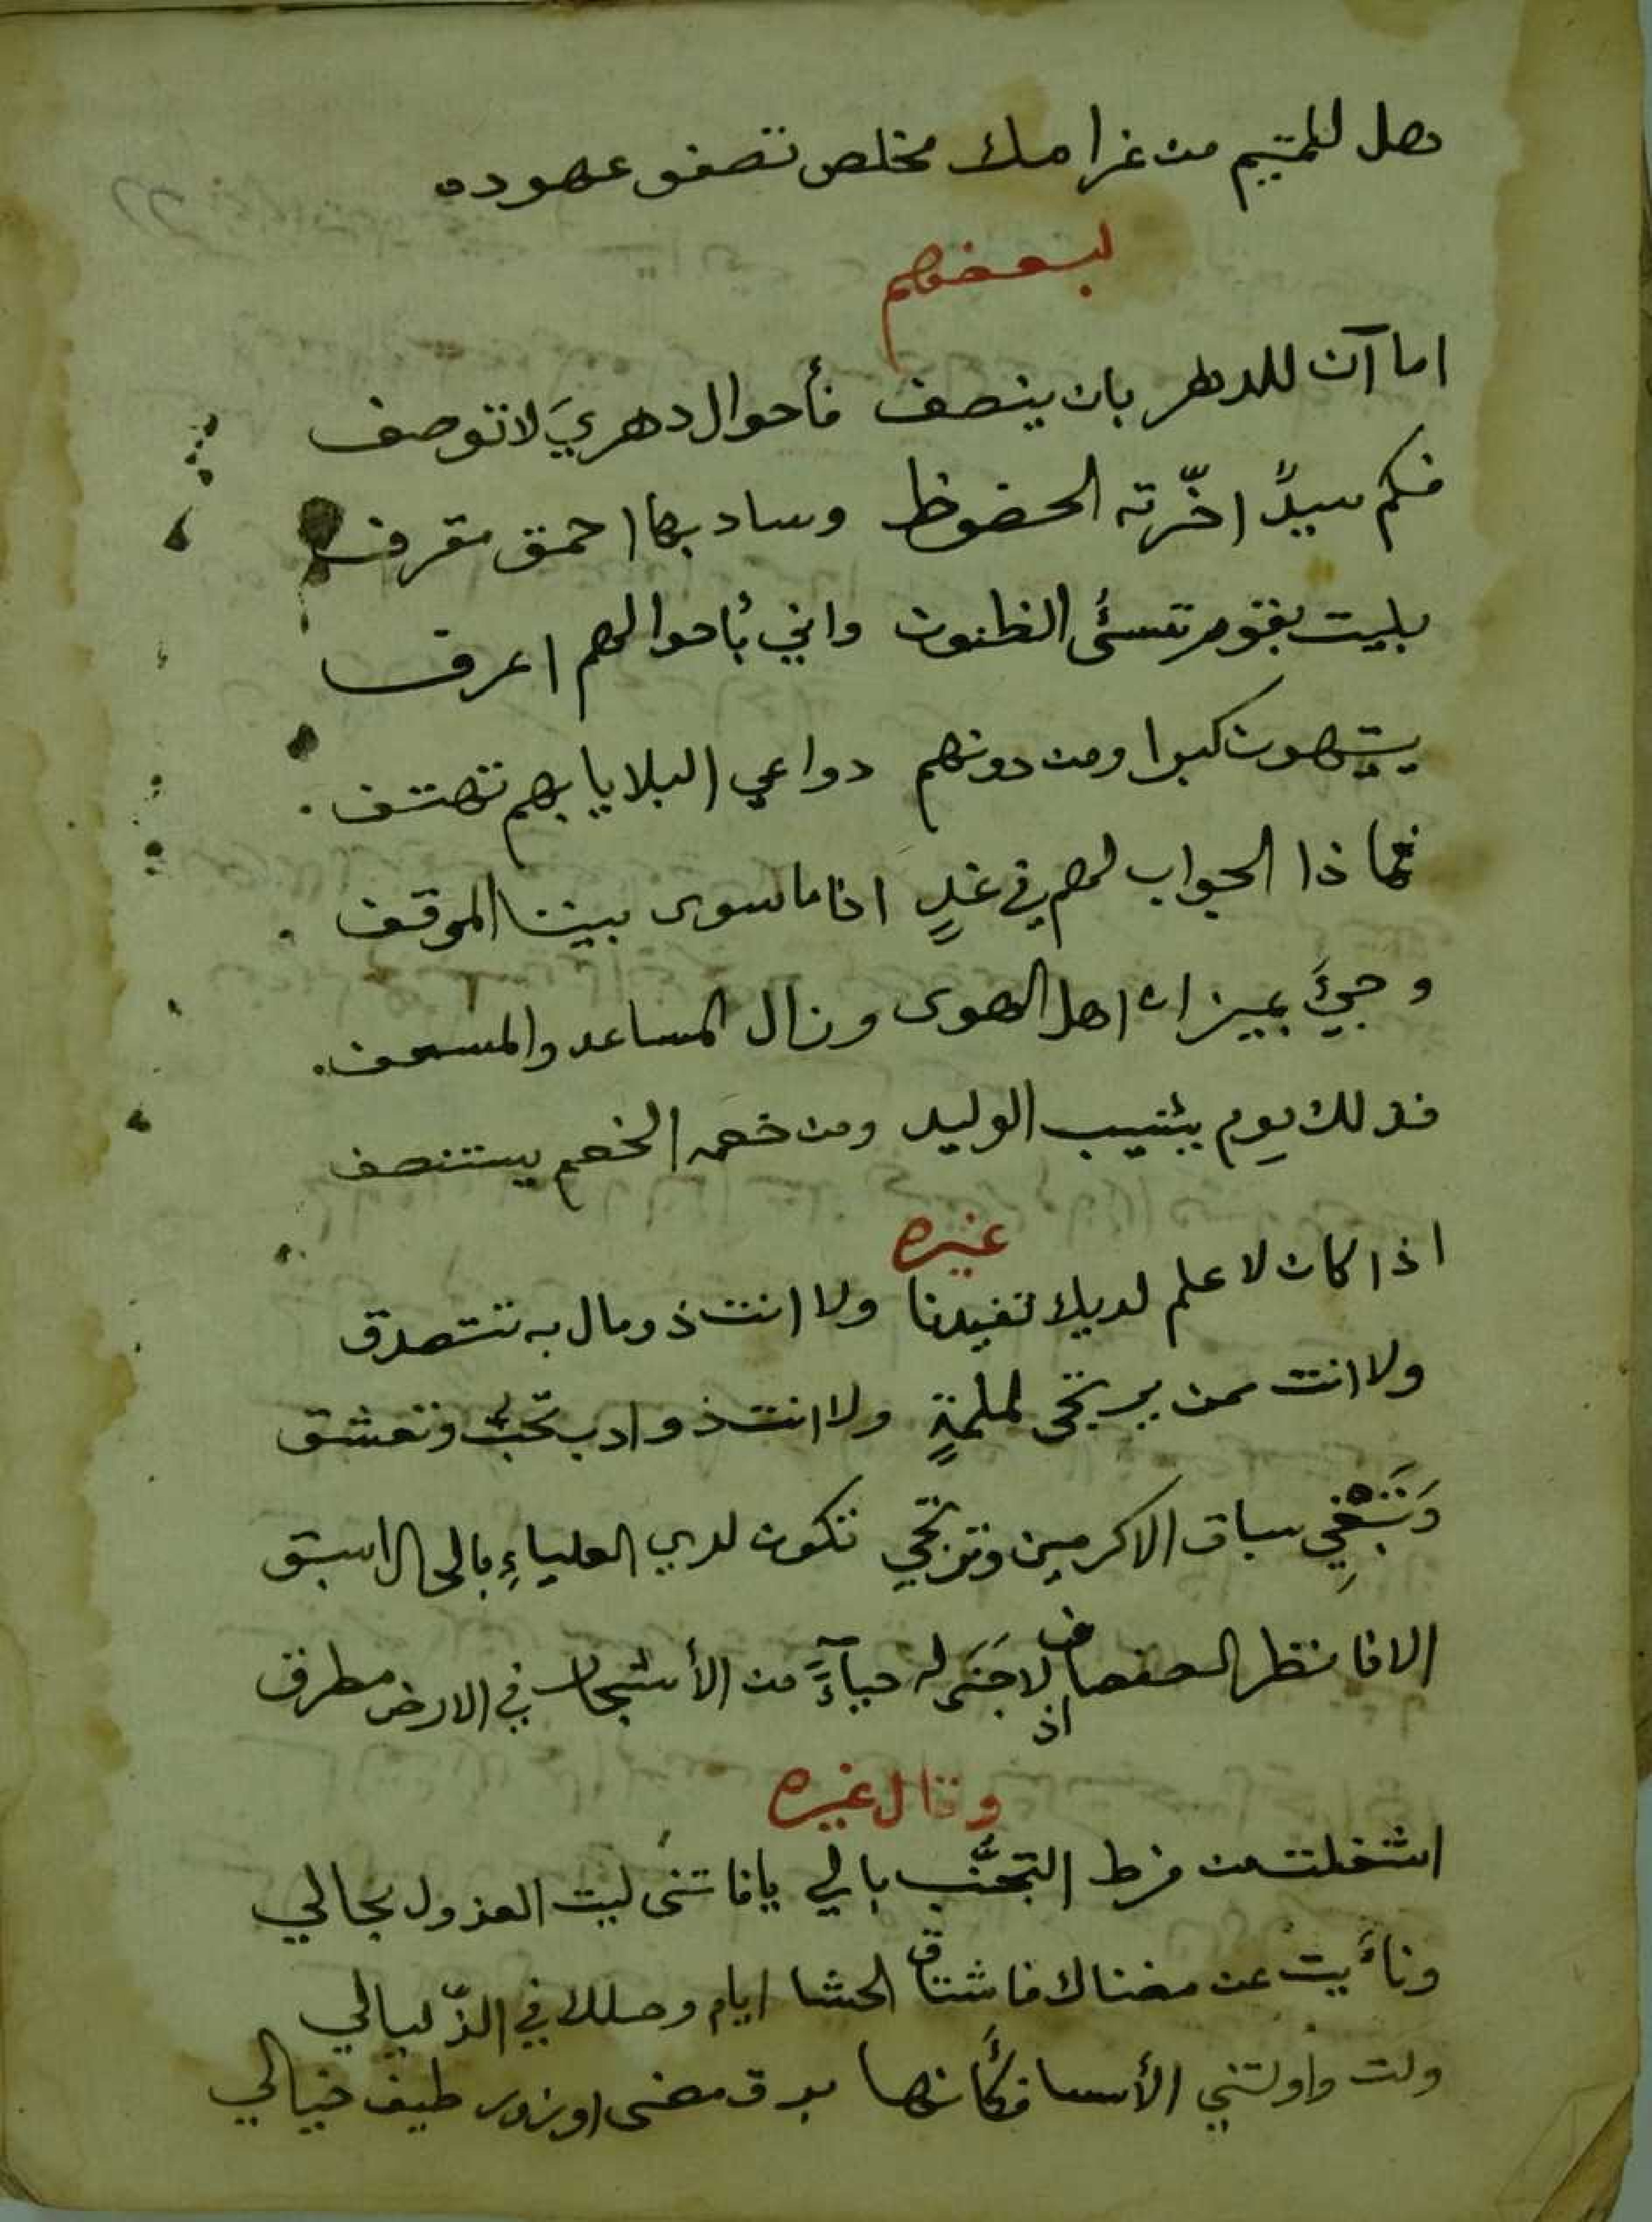 هل للمتيم من غرامك مخلص تصفو عهوده
لبعضهم
اما آن للدهر بان ينصف فأحوال دهريَ لا توصف
فكم سيدً اخّرته الحضوظ وساد بها احمق مقرف
بليت بقوم تسئُ الظنون واني بأحوالهم اعرف
يتيهون كبرا ومن دونهم دواعي البلايا بهم تهتف
فما ذا الجواب لهم في غدٍ اذا ما سوى بيننا الموقف
وجئَ بميزان اهل الهوى وزال المساعد والمسعف
فذلك يوم يشيب الوليد ومن خصمه الخصم يستنصف
غيره
اذا كان لا علم لديك تفيدنا ولا انت ذو مال به تتصدق
ولا انت ممن يرتجى لملمةٍ ولا انت ذو ادب تحبُّ وتعشق
وَتَبْغِي سباق الاكرمين وترتجي تكون لدي العلياءِ بالحال اسبق
الا فانظر الصفصاف اذ لا جَنَى له حياءً من الأشجار في الارض مطرق
وقال غيره
اشغلت من فرط التجنُّب بالي يا فاتنى ليت العذول بحالي
ونأَيت عن مضناك فاشتاق الحشا ايام وصلك في الذّ ليالي
ولت واولتني الأسا فكأَنها برق مضى او زور طيف خيالي